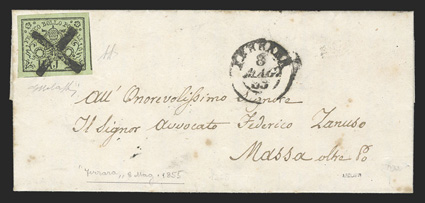 FERRARA
8
MAG
55
All' Onorevolissimo Signore
Il Signor Avvocato Federico Zanuso
Massa oltre Po
Ferrara, 8 Mag. 1855